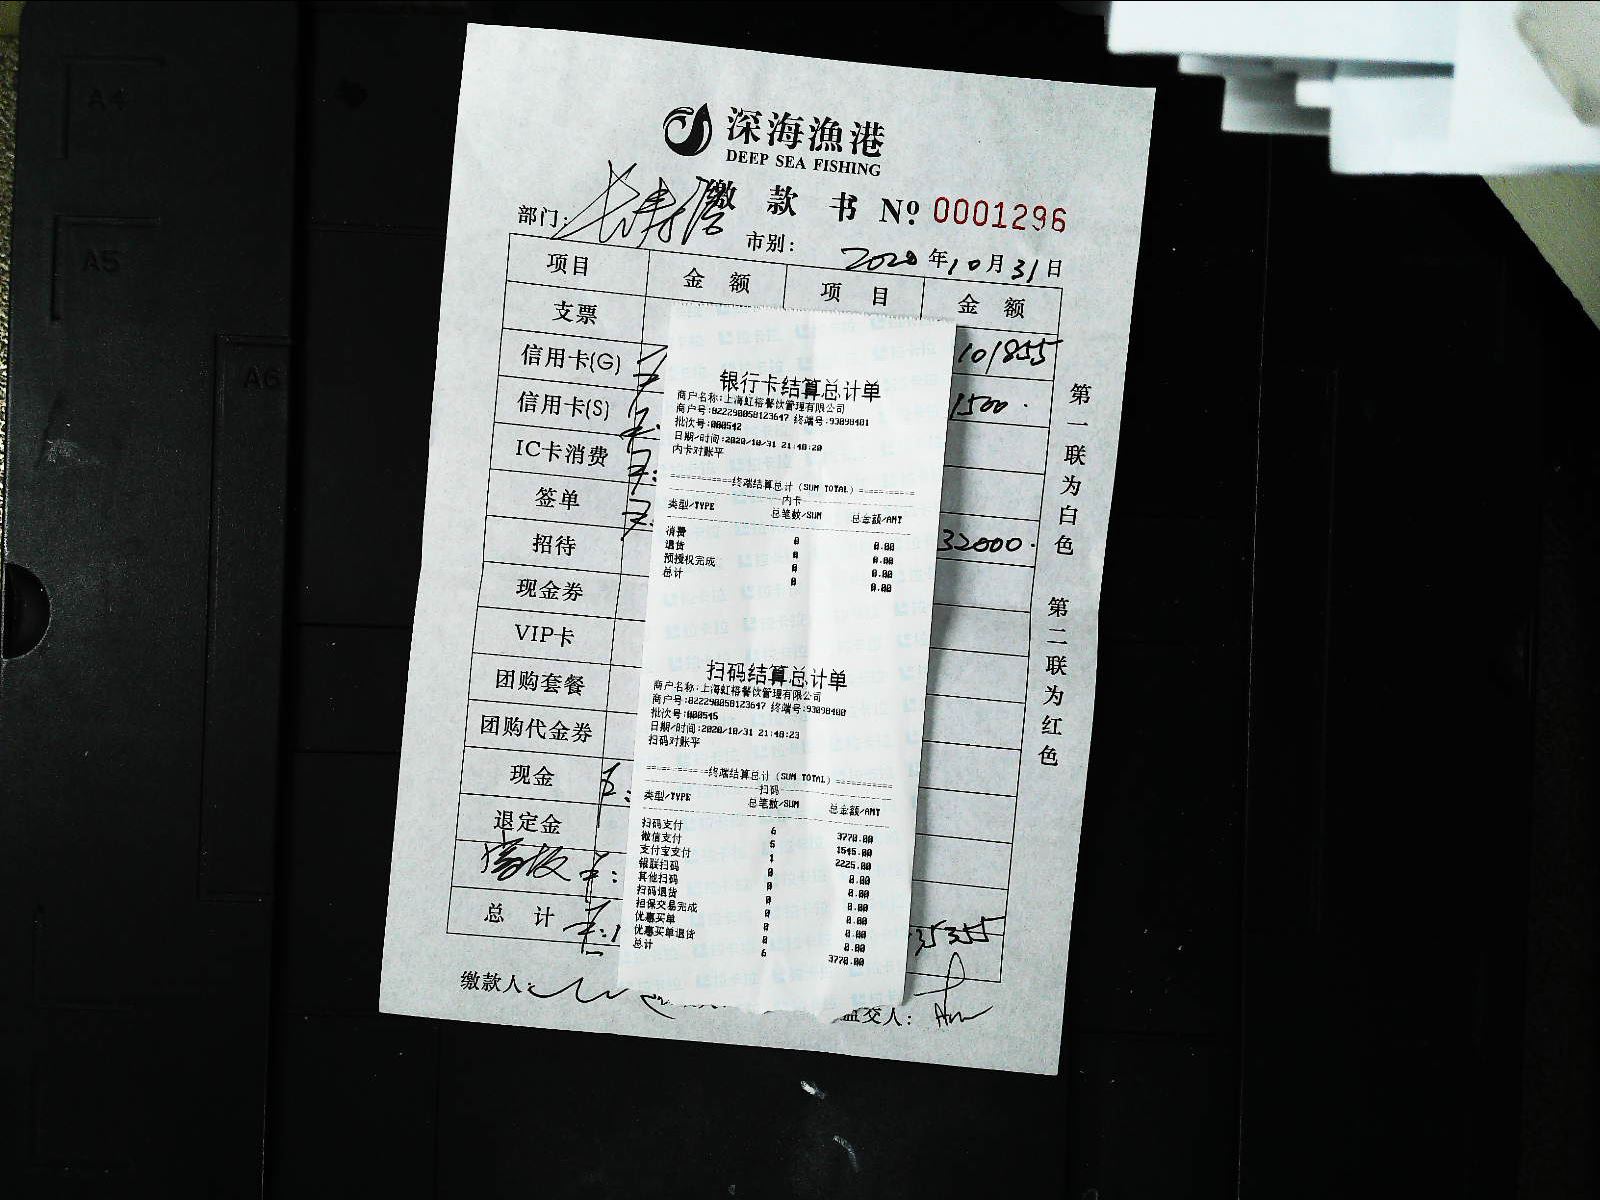 深海漁港
DEEP SEA FISHING
缴款书 № 0001296
部门:
市别: 2020年10月31日
项目 金额 项目 金额
支票
信用卡(G) 101855
信用卡(S) 1500.
IC卡消费
签单
招待 32000.
现金券
VIP卡
团购套餐
团购代金券
现金
退定金
总计 35355
缴款人:
交人:
第一联为白色 第二联为红色
银行卡结算总计单
商户名称:上海虹榕餐饮管理有限公司
商户号:822290058123647 终端号:93098401
批次号:000542
日期/时间:2020/10/31 21:48:20
内卡对账平
============终端结算总计(SUM TOTAL)===========
内卡
类型/TYPE 总笔数/SUM 总金额/AMT
消费 0 0.00
退货 0 0.00
预授权完成 0 0.00
总计 0 0.00
扫码结算总计单
商户名称:上海虹榕餐饮管理有限公司
商户号:822290058123647 终端号:93098400
批次号:000545
日期/时间:2020/10/31 21:48:23
扫码对账平
============终端结算总计(SUM TOTAL)===========
扫码
类型/TYPE 总笔数/SUM 总金额/AMT
扫码支付 6 3770.00
微信支付 5 1545.00
支付宝支付 1 2225.00
银联扫码 0 0.00
其他扫码 0 0.00
扫码退货 0 0.00
担保交易完成 0 0.00
优惠买单 0 0.00
优惠买单退货 0 0.00
总计 6 3770.00
A4
A5
A6